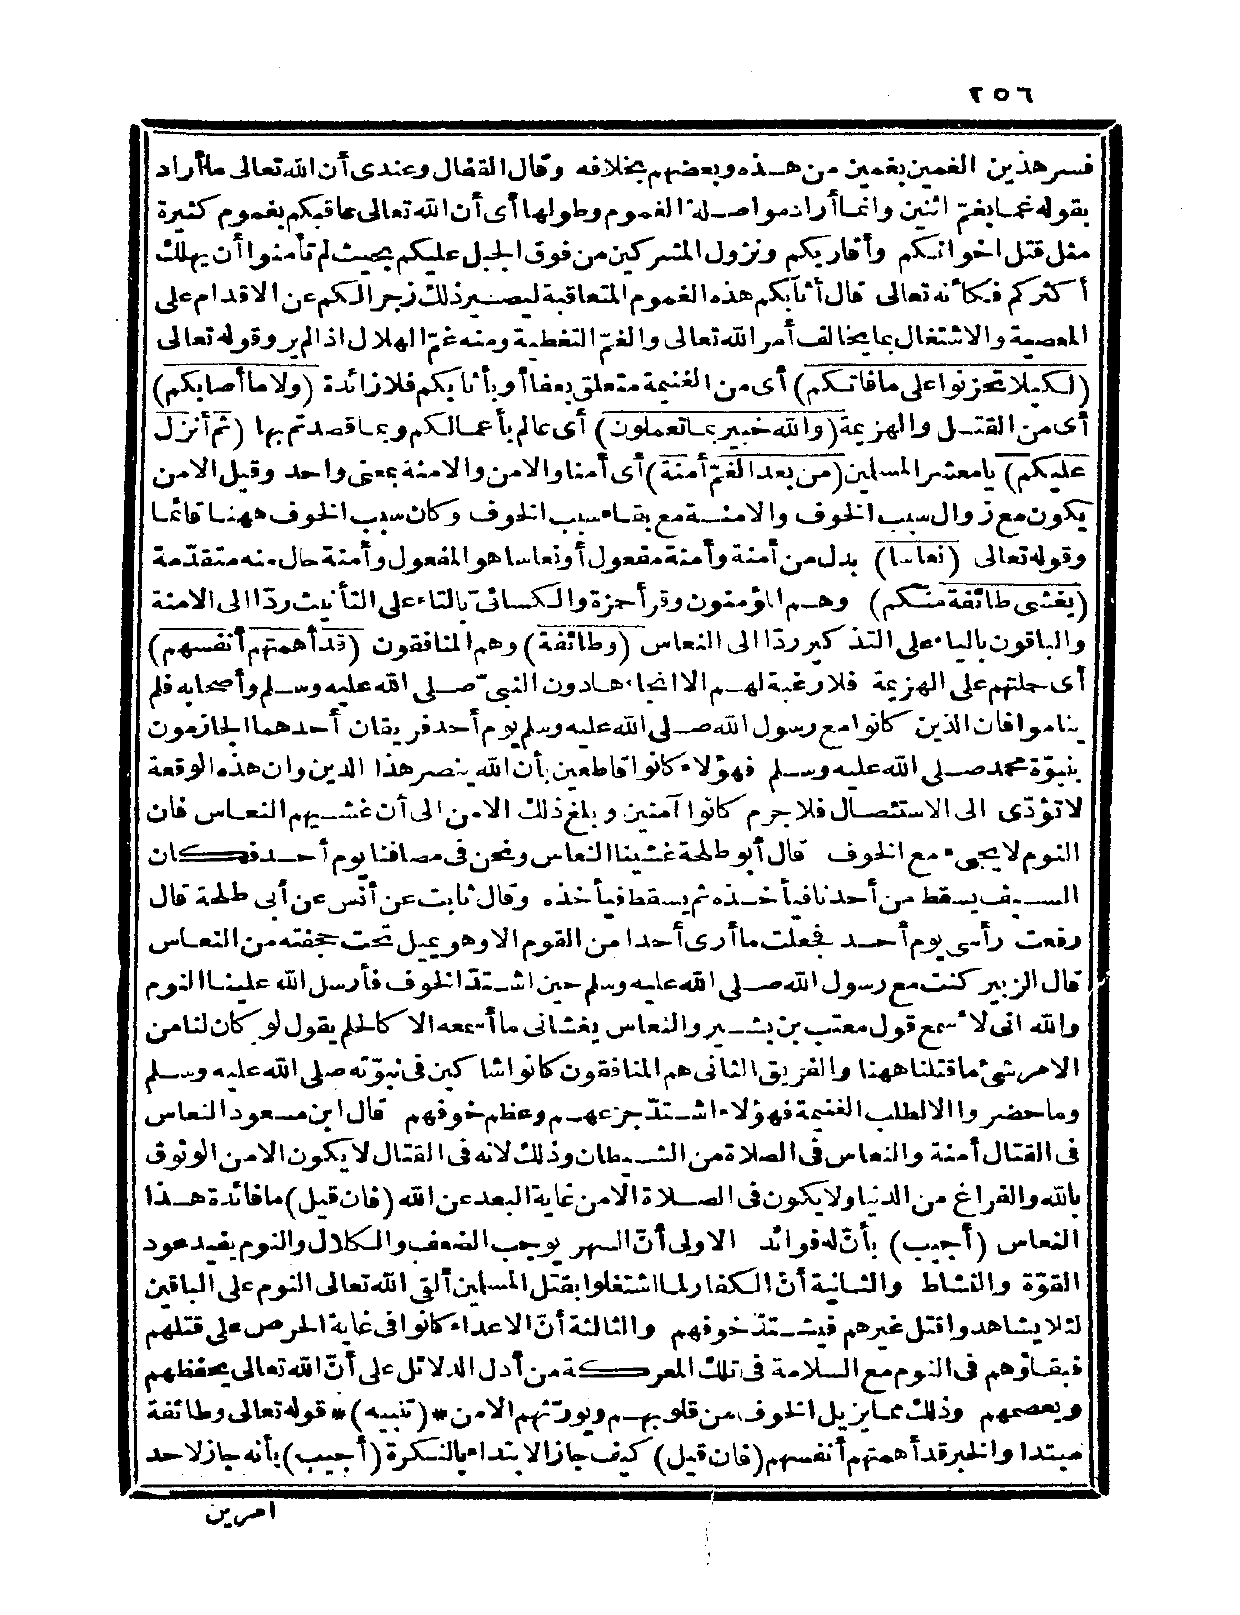 ٢٥٦
فسر هذين الغمين بغمين من هذه وبعضهم بخلافه وقال القفال وعندى أن الله تعالى ما أراد
بقوله غما بغمّ اثنين وانما أراد مواصلة الغموم وطولها أى أن الله تعالى عاقبكم بغموم كثيرة
مثل قتل اخوانكم وأقاربكم ونزول المشركين من فوق الجبل عليكم بحيث لم تأمنوا أن يهلك
أكثركم فكأنه تعالى قال أثابكم هذه الغموم المتعاقبة ليصير ذلك زجرا لكم عن الاقدام على
المعصية والاشتغال بما يخالف أمر الله تعالى والغمّ التغطية ومنه غمّ الهلال اذا لم ير وقوله تعالى
(لكيلا تحزنوا على ما فاتكم) أى من الغنيمة متعلق بعفا أو بأثابكم فلا زائدة (ولا ما أصابكم)
أى من القتل والهزيمة (والله خبير بما تعملون) أى عالم بأعمالكم وبما قصدتم بها (ثم أنزل
عليكم) يا معشر المسلين (من بعد الغمّ أمنة) أى أمنا والامن والامنة بمعنى واحد وقيل الامن
يكون مع زوال سبب الخوف والامنة مع بقاء سبب الخوف وكان سبب الخوف ههنا قائما
وقوله تعالى (نعاسا) بدل من أمنة وأمنة مفعول أو نعاسا هو المفعول وأمنة حال منه متقدّمة
(يغشى طائفة منكم) وهم المؤمنون وقرأ حمزة والكسائىّ بالتاء على التأنيث ردّا الى الامنة
والباقون بالياء على التذكير ردّا الى النعاس (وطائفة) وهم المنافقون (قد أهمتهم أنفسهم)
أى حملتهم على الهزيمة فلا رغبة لهم الا انجاءها دون النبىّ صلى الله عليه وسلم وأصحابه فلم
يناموا فان الذين كانوا مع رسول الله صلى الله عليه وسلم يوم أحد فريقان أحدهما الجازمون
بنبوّة محمد صلى الله عليه وسلم فهؤلاء كانوا قاطعين بأن الله ينصر هذا الدين وان هذه الوقعة
لا تؤدّى الى الاستئصال فلا جرم كانوا آمنين وبلغ ذلك الامن الى أن غشيهم النعاس فان
النوم لا يجىء مع الخوف قال أبو طلحة غشينا النعاس ونحن فى مصافنا يوم أحد فكان
السيف يسقط من أحدنا فيأخذه ثم يسقط فيأخذه وقال ثابت عن أنس عن أبى طلحة قال
رفعت رأسى يوم أحد فجعلت ما أرى أحدا من القوم الا وهو يميل تحت جحفته من النعاس
قال الزبير كنت مع رسول الله صلى الله عليه وسلم حين اشتدّ الخوف فأرسل الله علينا النوم
والله انى لا ٔسمع قول معتب بن بشير والنعاس يغشانى ما أسمعه الا كالحلم يقول لو كان لنا من
الامر شئ ما قتلنا ههنا والفريق الثانى هم المنافقون كانوا شاكين فى نبوّته صلى الله عليه وسلم
وما حضروا الا لطلب الغنيمة فهؤلاء اشتدّ جزعهم وعظم خوفهم قال ابن مسعود النعاس
فى القتال أمنة والنعاس فى الصلاة من الشيطان وذلك لانه فى القتال لا يكون الا من الوثوق
بالله والفراغ من الدنيا ولا يكون فى الصلاة الا من غاية البعد عن الله (فان قيل) ما فائدة هذا
النعاس (أجيب) بأنّ له فوائد الاولى أنّ السهر يوجب الضعف والكلال والنوم يفيد عود
القوّة والنشاط والثانية أنّ الكفار لما اشتغلوا بقتل المسلمين ألقى الله تعالى النوم على الباقين
لئلا يشاهدوا قتل غيرهم فيشتدّ خوفهم والثالثة أنّ الاعداء كانوا فى غاية الحرص على قتلهم
فبقاؤهم فى النوم مع السلامة فى تلك المعركة من أدل الدلائل على أنّ الله تعالى يحفظهم
ويعصمهم وذلك مما يزيل الخوف من قلوبهم ويورثهم الامن *(تنبيه)* قوله تعالى وطائفة
مبتدا والخبر قد أهمتهم أنفسهم (فان قيل) كيف جاز الابتداء بالنكرة (أجيب) بأنه جاز لاحد
امرين